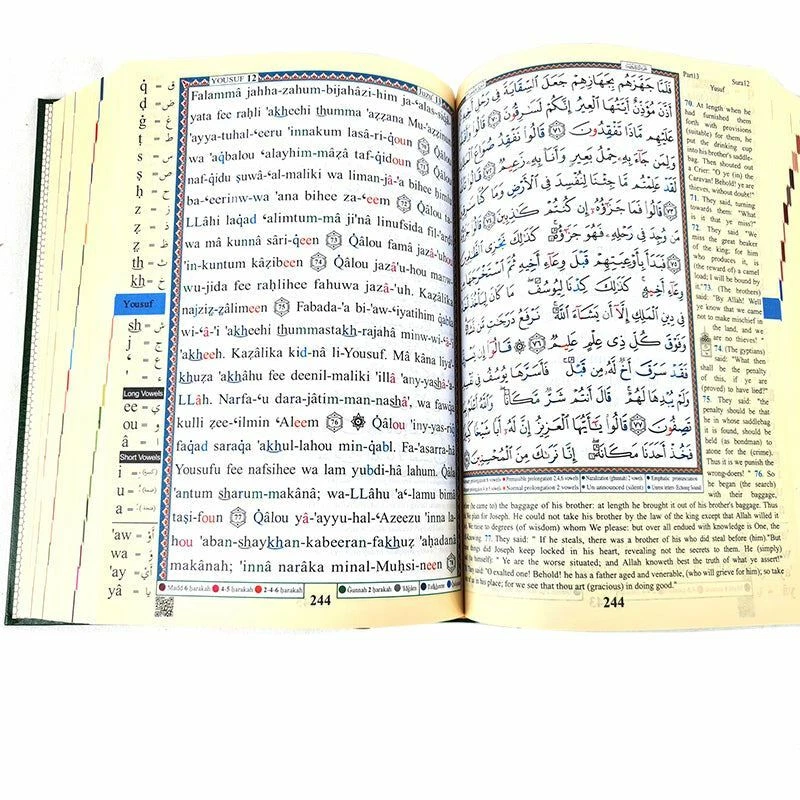 YOUSUF 12
Juzu' 13
Falammâ jahha-zahum-bijahâzi-him ja-'alas-siqâ
yata fee raḥli 'akheehi thumma 'aẓẓana Mu-'aẓẓinun
'ayya-tuhal-'eeru 'innakum lasâ-ri-qoun 70 Qâlou
wa 'aqbalou 'alayhim-mâẓâ taf-qidoun 71 Qâlou
naf-qidu ṣuwâ-'al-maliki wa liman-jâ-'a bihee ḥimlu
ba-'eerinw-wa 'ana bihee za-'eem 72 Qâlou ta
LLâhi laqad 'alimtum-mâ ji'nâ linufsida fil-'arḍi
wa mâ kunnâ sâri-qeen 73 Qâlou famâ jazâ-'uhou
'in-kuntum kâẓibeen 74 Qâlou jazâ-'u-hou manw-
wu-jida fee raḥlihee fahuwa jazâ-'uh. Kaẓâlika
najziẓ-ẓâlimeen 75 Fabada-'a bi-'aw-'iyatihim qabla
wi-'â-'i 'akheehi thummastakh-rajahâ minw-wi-'â-'i
'akheeh. Kaẓâlika kid-nâ li-Yousuf. Mâ kâna liya'
khuẓa 'akhâhu fee deenil-maliki 'illâ 'any-yashâ-'a-
LLâh. Narfa-'u dara-jâtim-man-nashâ', wa fawqa
kulli ẓee-'ilmin 'Aleem 76 Qâlou 'iny-yas-riq
faqad saraqa 'akhul-lahou min-qabl. Fa-'asarra-hâ
Yousufu fee nafsihee wa lam yubdi-hâ lahum. Qâla
'antum sharum-makânâ; wa-LLâhu 'a'-lamu bimâ
taṣi-foun 77 Qâlou yâ-'ayyu-hal-'Azeezu 'inna la-
hou 'aban-shaykhan-kabeeran-fakhuẓ 'aḥadanâ
makânah; 'innâ narâka minal-Muḥsi-neen 78
Madd 6 ḥarakah 4-5 ḥarakah 2-4-6 ḥarakah Gunnah 2 ḥarakah Tafkheem
244
q̇ = ق
ḍ = ض
ġ = غ
ṣ = ص
h = هـ
ḥ = ح
z = ز
ẓ = ظ
th = ث
kh = خ
Yousuf
sh = ش
j = ج
' = ع
' = ء
Long Vowels
ee = ي
ou = و
â = ا
Short Vowels
i =
u =
a =
'aw = أو
wa = و
'ay = أي
yâ = يا
فَلَمَّا جَهَّزَهُم بِجَهَازِهِمْ جَعَلَ ٱلسِّقَايَةَ فِي رَحْلِ أَخِيهِ ثُمَّ
أَذَّنَ مُؤَذِّنٌ أَيَّتُهَا ٱلْعِيرُ إِنَّكُمْ لَسَٰرِقُونَ ٧٠ قَالُوا۟ وَأَقْبَلُوا۟
عَلَيْهِم مَّاذَا تَفْقِدُونَ ٧١ قَالُوا۟ نَفْقِدُ صُوَاعَ ٱلْمَلِكِ
وَلِمَن جَآءَ بِهِۦ حِمْلُ بَعِيرٍ وَأَنَا۠ بِهِۦ زَعِيمٌ ٧٢ قَالُوا۟ تَٱللَّهِ
لَقَدْ عَلِمْتُم مَّا جِئْنَا لِنُفْسِدَ فِي ٱلْأَرْضِ وَمَا كُنَّا سَٰرِقِينَ
٧٣ قَالُوا۟ فَمَا جَزَٰٓؤُهُۥٓ إِن كُنتُمْ كَٰذِبِينَ ٧٤ قَالُوا۟ جَزَٰٓؤُهُۥ
مَن وُجِدَ فِي رَحْلِهِۦ فَهُوَ جَزَٰٓؤُهُۥ كَذَٰلِكَ نَجْزِي ٱلظَّٰلِمِينَ
٧٥ فَبَدَأَ بِأَوْعِيَتِهِمْ قَبْلَ وِعَآءِ أَخِيهِ ثُمَّ ٱسْتَخْرَجَهَا مِن
وِعَآءِ أَخِيهِ كَذَٰلِكَ كِدْنَا لِيُوسُفَ مَا كَانَ لِيَأْخُذَ أَخَاهُ
فِي دِينِ ٱلْمَلِكِ إِلَّآ أَن يَشَآءَ ٱللَّهُ نَرْفَعُ دَرَجَٰتٍ مَّن نَّشَآءُ
وَفَوْقَ كُلِّ ذِي عِلْمٍ عَلِيمٌ ٧٦ قَالُوٓا۟ إِن يَسْرِقْ
فَقَدْ سَرَقَ أَخٌ لَّهُۥ مِن قَبْلُ فَأَسَرَّهَا يُوسُفُ فِي نَفْسِهِۦ
وَلَمْ يُبْدِهَا لَهُمْ قَالَ أَنتُمْ شَرٌّ مَّكَانًا وَٱللَّهُ أَعْلَمُ بِمَا
تَصِفُونَ ٧٧ قَالُوا۟ يَٰٓأَيُّهَا ٱلْعَزِيزُ إِنَّ لَهُۥٓ أَبًا شَيْخًا كَبِيرًا
فَخُذْ أَحَدَنَا مَكَانَهُۥٓ إِنَّا نَرَىٰكَ مِنَ ٱلْمُحْسِنِينَ
Permissible prolongation 2,4,6 vowels Nazalization (ghunnah) 2 vowels Emphatic pronunciation
Normal prolongation 2 vowels Un announced (silent) Unrest letters (Echoing Sound)
Part13 Sura12
Yusuf
70. At length when he
had furnished them
forth with provisions
(suitable) for them, he
put the drinking cup
into his brother's saddle-
bag. Then shouted out
a Crier: "O ye (in) the
Caravan! Behold! ye are
thieves, without doubt!"
71. They said, turning
towards them: "What
is it that ye miss?"
72. They said: "We
miss the great beaker
of the king; for him
who produces it, is
(the reward of) a camel
load; I will be bound by
it." 73. (The brothers)
said: "By Allah! Well
ye know that we came
not to make mischief in
the land, and we
are no thieves!"
74. (The egyptians)
said: "What then
shall be the penalty
of this, if ye are
(proved) to have lied?"
75. They said: "the
penalty should be that
he in whose saddlebag
it is found, should be
held (as bondman) to
atone for the (crime).
Thus it is we punish the
wrong-doers!" 76. So
he began (the search)
with their baggage,
(he came to) the baggage of his brother: at length he brought it out of his brother's baggage. Thus
We plan for Joseph. He could not take his brother by the law of the king except that Allah willed it
We raise to degrees (of wisdom) whom We please: but over all endued with knowledge is One, the
Knowing. 77. They said: " If he steals, there was a brother of his who did steal before (him)."But
things did Joseph keep locked in his heart, revealing not the secrets to them. He (simply)
himself): " Ye are the worse situated; and Allah knoweth best the truth of what ye assert!"
said: "O exalted one! Behold! he has a father aged and venerable, (who will grieve for him); so take
in his place; for we see that thou art (gracious) in doing good."
244